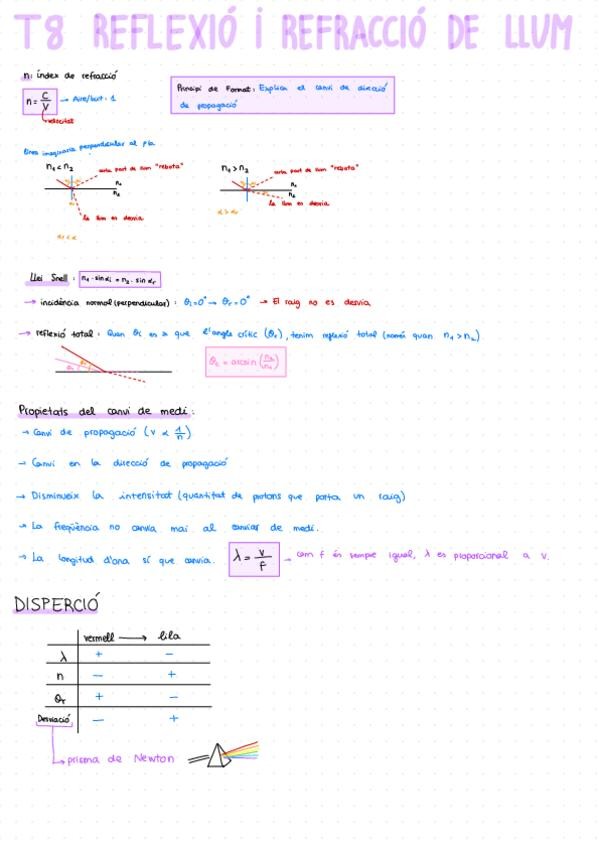 T8 REFLEXIÓ I REFRACCIÓ DE LLUM
n: índex de refracció
n = C/V → Aire/buit: 1
velocitat
Principi de Format: Explica el canvi de direcció
de propagació
línea imaginaria perpendicular al pla
n₁ < n₂
certa part de llum "rebota"
n₁
n₂
la llum es desvia
αr < αi
n₁ > n₂
certa part de llum "rebota"
n₁
n₂
la llum es desvia
Llei Snell: n₁ · sin αi = n₂ · sin αr
→ incidència normal (perpendicular): θi = 0° → θr = 0° → El raig no es desvia
→ reflexió total: Quan θi és > que l'angle crític (θc), tenim reflexió total (només quan n₁ > n₂)
θc = arcsin (n₂/n₁)
Propietats del canvi de medi:
→ Canvi de propagació (v ∝ 1/n)
→ Canvi en la direcció de propagació
→ Disminueix la intensitat (quantitat de protons que porta un raig)
→ La freqüència no canvia mai al canviar de medi.
→ La longitud d'ona sí que canvia. λ = v/f → com f és sempre igual, λ es proporcional a v.
DISPERCIÓ
vermell → lila
λ + -
n - +
θr + -
Desviació - +
prisma de Newton